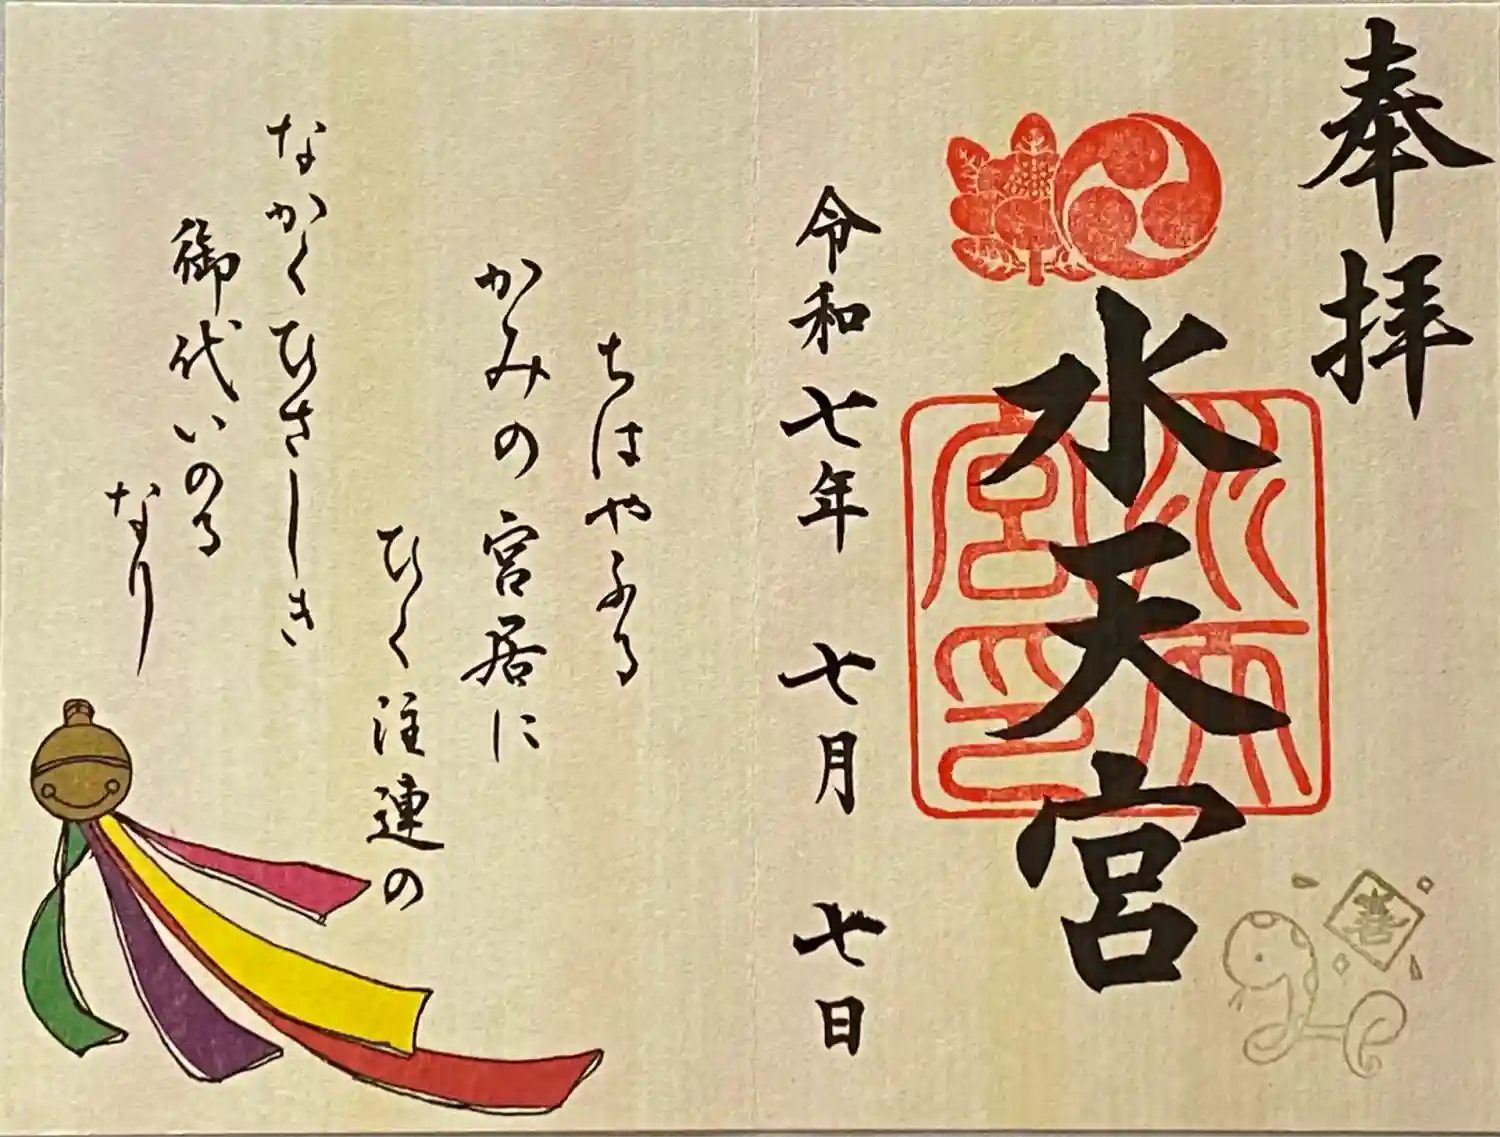 奉拝
水天宮
水天宮印
喜
令和七年 七月 七日
ちはやふる
かみの宮居に
ひく注連の
なかくひさしき
御代いのる
なり